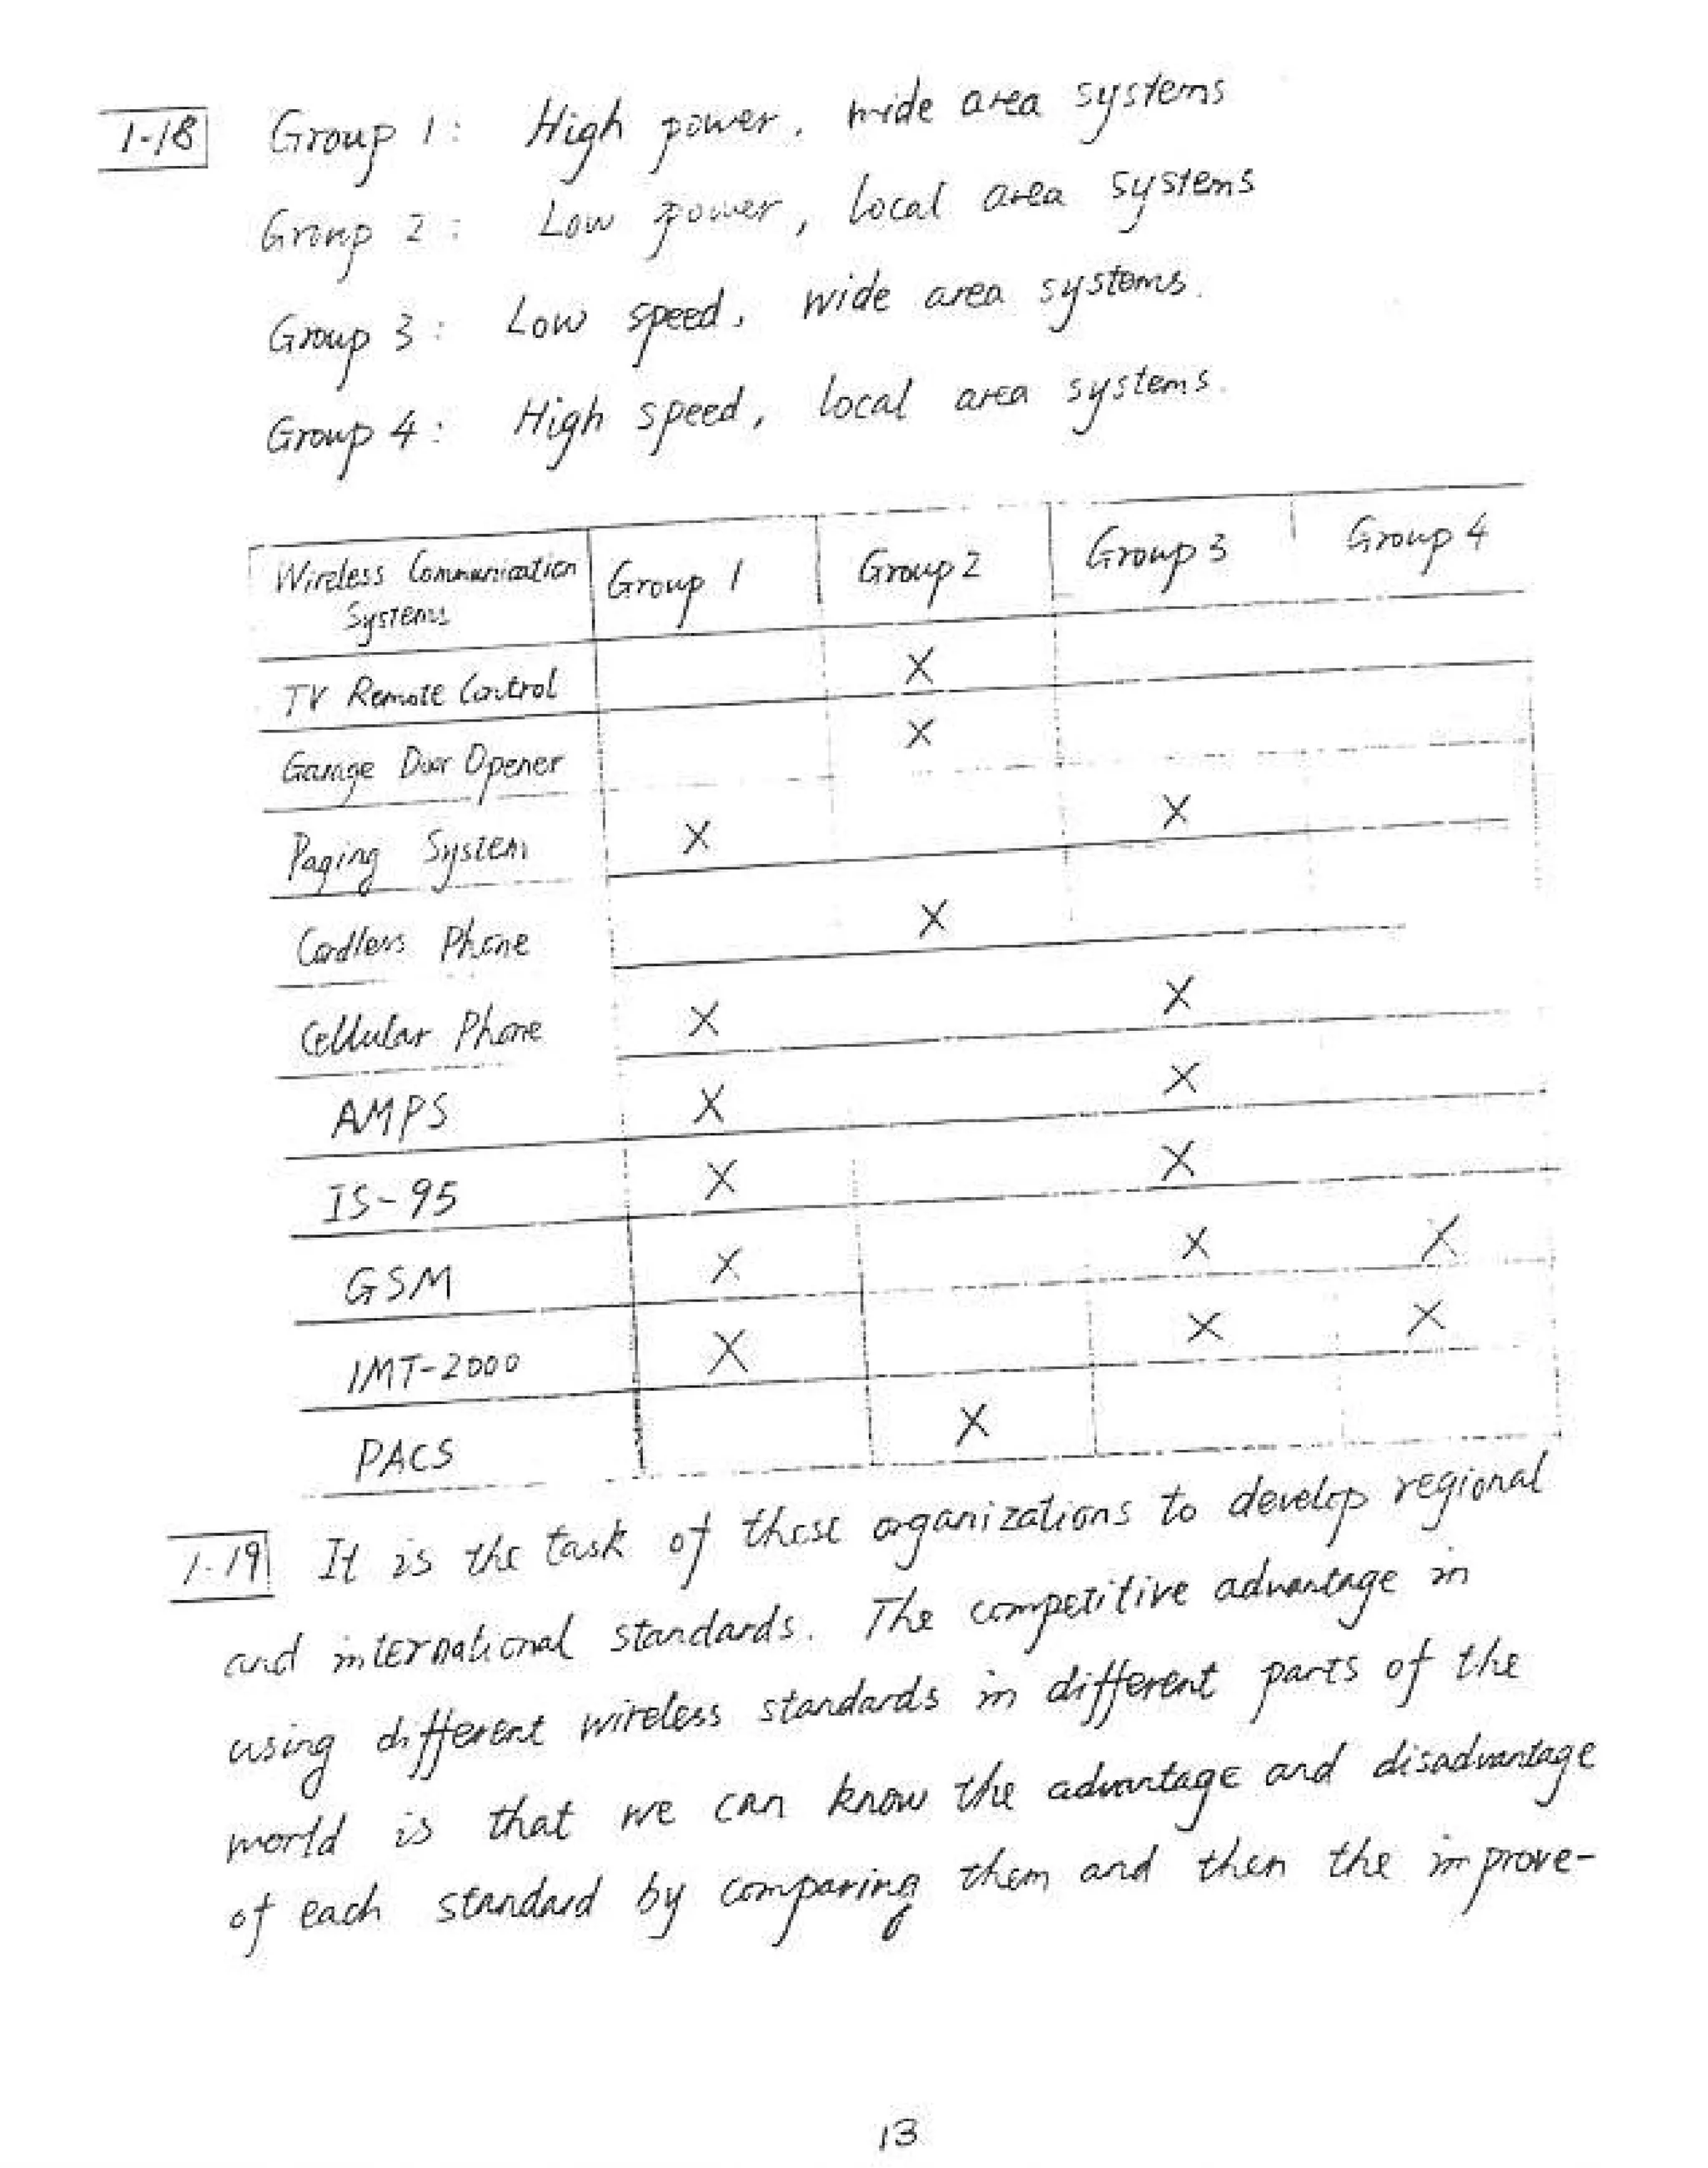 1-18 Group 1: High power, wide area systems
Group 2: Low power, local area systems
Group 3: Low speed, wide area systems.
Group 4: High speed, local area systems.
Wireless Communication Systems Group 1 Group 2 Group 3 Group 4
TV Remote Control X
Garage Door Opener X
Paging System X X
Cordless Phone X
Cellular Phone X X
AMPS X X
IS-95 X X
GSM X X X
IMT-2000 X X X
PACS X
1-19 It is the task of these organizations to develop regional
and international standards. The competitive advantage in
using different wireless standards in different parts of the
world is that we can know the advantage and disadvantage
of each standard by comparing them and then the improve-
13